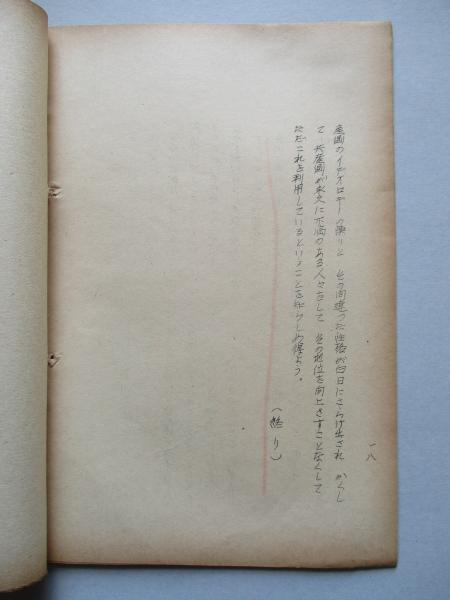 産圏のイデオロギーの偽りと その間違つた性格が白日にさらけ出され かくし
て 共産圏が永久に不満のある人々をして その地位を向上さすことなくして
ただこれを利用しているということを知らしめ得よう。
(終り)
一八